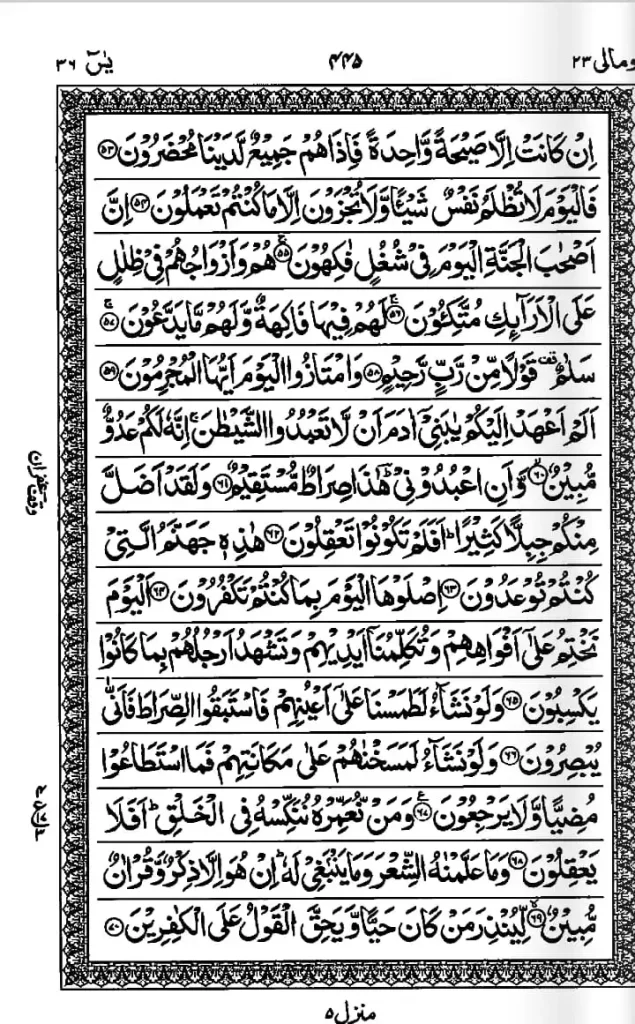 ومالی ۲۳
۴۴۵
یٰسٓ ۳۶
اِنۡ كَانَتۡ اِلَّا صَيۡحَةً وَّاحِدَةً فَاِذَا هُمۡ جَمِيۡعٌ لَّدَيۡنَا مُحۡضَرُوۡنَ ۵۳
فَالۡيَوۡمَ لَا تُظۡلَمُ نَفۡسٌ شَيۡـًٔا وَّلَا تُجۡزَوۡنَ اِلَّا مَا كُنۡتُمۡ تَعۡمَلُوۡنَ ۵۴ اِنَّ
اَصۡحٰبَ الۡجَنَّةِ الۡيَوۡمَ فِىۡ شُغُلٍ فٰكِهُوۡنَ ۵۵ هُمۡ وَاَزۡوَاجُهُمۡ فِىۡ ظِلٰلٍ
عَلَى الۡاَرَآٮِٕكِ مُتَّكِـُٔوۡنَ ۵۶ لَهُمۡ فِيۡهَا فَاكِهَةٌ وَّلَهُمۡ مَّا يَدَّعُوۡنَ ۵۷
سَلٰمٌ قف قَوۡلًا مِّنۡ رَّبٍّ رَّحِيۡمٍ ۵۸ وَامۡتَازُوا الۡيَوۡمَ اَيُّهَا الۡمُجۡرِمُوۡنَ ۵۹
اَلَمۡ اَعۡهَدۡ اِلَيۡكُمۡ يٰبَنِىۡۤ اٰدَمَ اَنۡ لَّا تَعۡبُدُوا الشَّيۡطٰنَ ۚ اِنَّهٗ لَـكُمۡ عَدُوٌّ
مُّبِيۡنٌ ۶۰ وَّاَنِ اعۡبُدُوۡنِىۡ ؕ هٰذَا صِرَاطٌ مُّسۡتَقِيۡمٌ ۶۱ وَلَقَدۡ اَضَلَّ
مِنۡكُمۡ جِبِلًّا كَثِيۡرًا ؕ اَفَلَمۡ تَكُوۡنُوۡا تَعۡقِلُوۡنَ ۶۲ هٰذِهٖ جَهَنَّمُ الَّتِىۡ
كُنۡتُمۡ تُوۡعَدُوۡنَ ۶۳ اِصۡلَوۡهَا الۡيَوۡمَ بِمَا كُنۡتُمۡ تَكۡفُرُوۡنَ ۶۴ اَلۡيَوۡمَ
نَخۡتِمُ عَلٰٓى اَفۡوَاهِهِمۡ وَتُكَلِّمُنَاۤ اَيۡدِيۡهِمۡ وَتَشۡهَدُ اَرۡجُلُهُمۡ بِمَا كَانُوۡا
يَكۡسِبُوۡنَ ۶۵ وَلَوۡ نَشَآءُ لَطَمَسۡنَا عَلٰٓى اَعۡيُنِهِمۡ فَاسۡتَبَقُوا الصِّرَاطَ فَاَنّٰى
يُبۡصِرُوۡنَ ۶۶ وَلَوۡ نَشَآءُ لَمَسَخۡنٰهُمۡ عَلٰى مَكَانَتِهِمۡ فَمَا اسۡتَطَاعُوۡا
مُضِيًّا وَّلَا يَرۡجِعُوۡنَ ۶۷ وَمَنۡ نُّعَمِّرۡهُ نُنَكِّسۡهُ فِى الۡخَـلۡقِ ؕ اَفَلَا
يَعۡقِلُوۡنَ ۶۸ وَمَا عَلَّمۡنٰهُ الشِّعۡرَ وَمَا يَنۡۢبَغِىۡ لَهٗ ؕ اِنۡ هُوَ اِلَّا ذِكۡرٌ وَّقُرۡاٰنٌ
مُّبِيۡنٌ ۶۹ لِّيُنۡذِرَ مَنۡ كَانَ حَيًّا وَّيَحِقَّ الۡقَوۡلُ عَلَى الۡكٰفِرِيۡنَ ۷۰
وقف غفران
منزل ۵